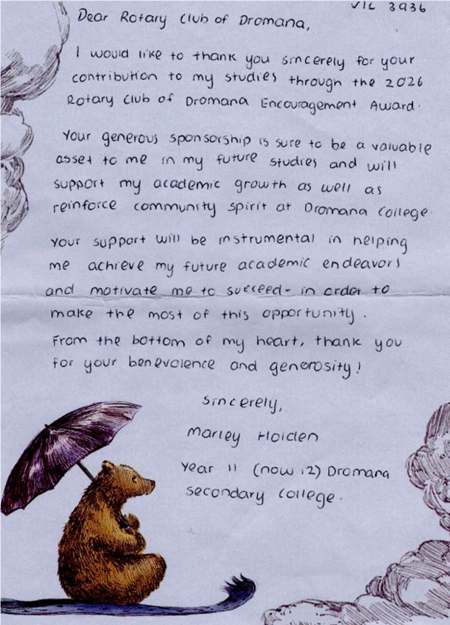 VIC 3936
Dear Rotary Club of Dromana,
I would like to thank you sincerely for your
contribution to my studies through the 2026
Rotary Club of Dromana Encouragement Award.
Your generous sponsorship is sure to be a valuable
asset to me in my future studies and will
support my academic growth as well as
reinforce community spirit at Dromana College.
Your support will be instrumental in helping
me achieve my future academic endeavors
and motivate me to succeed- in order to
make the most of this opportunity.
From the bottom of my heart, thank you
for your benevolence and generosity!
Sincerely,
Marley Holden
Year 11 (now 12) Dromana
Secondary College.